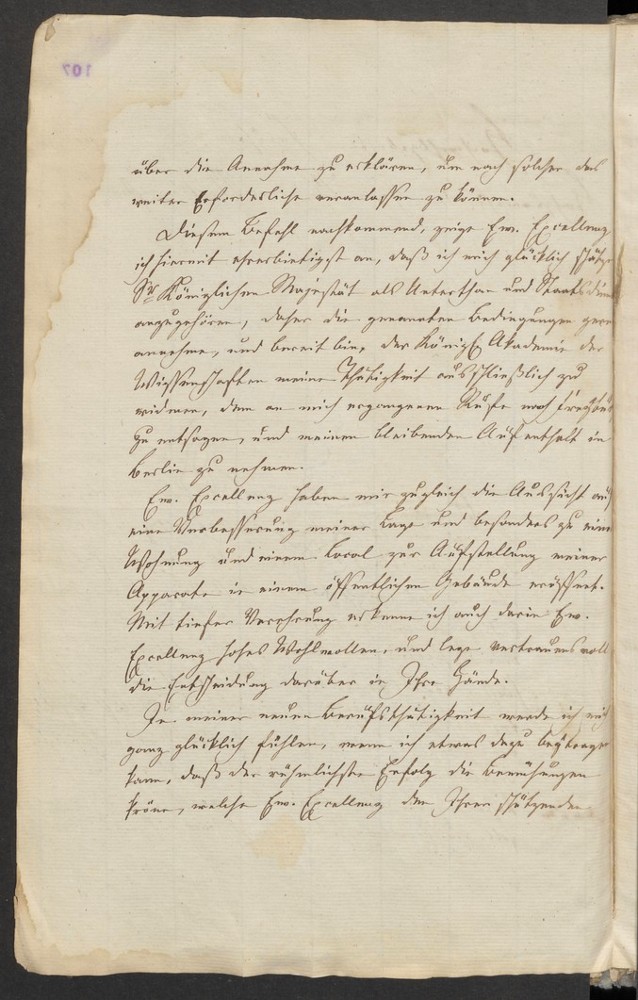 107
über die Annahme zu erklären, um nach solcher das
weiter Erforderliche veranlassen zu können.
Diesem Befehl nachkommend, zeige Ew. Excellenz
ich hiermit ehrerbietigst an, daß ich mich glücklich schätze
Sr Königlichen Majestät als Unterthan und Staatsdiener
anzugehören, daher die genannten Bedingungen gern
annehme, und bereit bin, der Königl. Akademie der
Wissenschaften meine Thätigkeit ausschließlich zu
widmen, dem an mich ergangenen Rufe nach
zu entsagen, und meinen bleibenden Aufenthalt in
Berlin zu nehmen.
Ew. Excellenz haben mir zugleich die Aussicht auf
eine Verbesserung meiner Lage und besonders zu einer
Wohnung und einem Local zur Aufstellung meiner
Apparate in einem öffentlichen Gebäude eröffnet.
Mit tiefer Verehrung erkenne ich auch darin Ew.
Excellenz hohes Wohlwollen, und lege vertrauensvoll
die Entscheidung darüber in Ihre Hände.
In meiner neuen Berufsthätigkeit werde ich mich
ganz glücklich fühlen, wenn ich etwas dazu beytragen
kann, daß der rühmlichste Erfolg die Bemühungen
kröne, welche Ew. Excellenz dem Ihrer schützenden